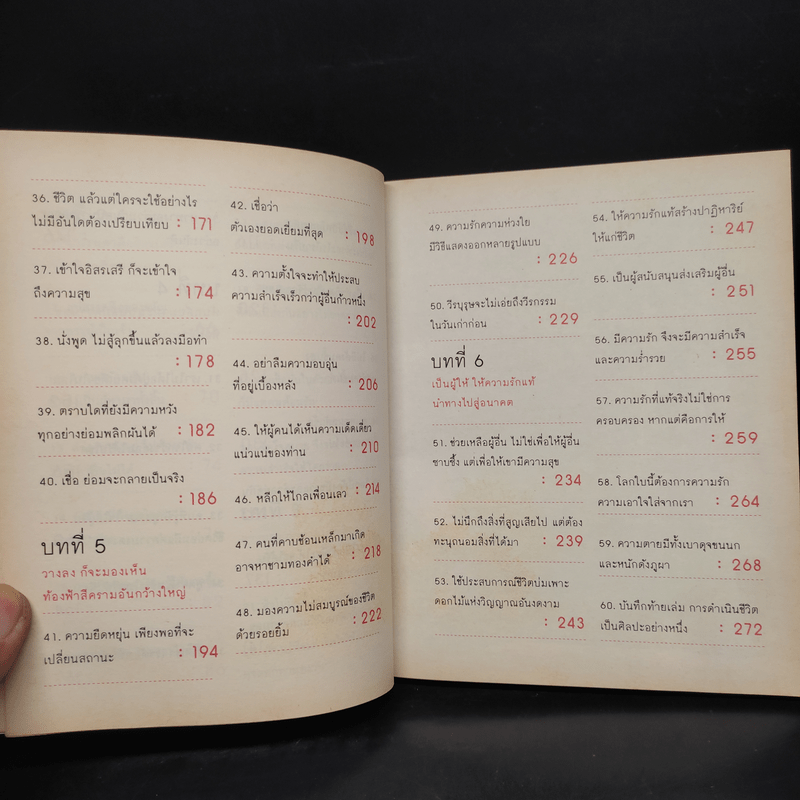 36. ชีวิต แล้วแต่ใครจะใช้อย่างไร
ไม่มีอันใดต้องเปรียบเทียบ : 171
37. เข้าใจอิสรเสรี ก็จะเข้าใจ
ถึงความสุข : 174
38. นั่งพูด ไม่สู้ลุกขึ้นแล้วลงมือทำ
: 178
39. ตราบใดที่ยังมีความหวัง
ทุกอย่างย่อมพลิกผันได้ : 182
40. เชื่อ ย่อมจะกลายเป็นจริง
: 186
บทที่ 5
วางลง ก็จะมองเห็น
ท้องฟ้าสีครามอันกว้างใหญ่
41. ความยืดหยุ่น เพียงพอที่จะ
เปลี่ยนสถานะ : 194
42. เชื่อว่า
ตัวเองยอดเยี่ยมที่สุด : 198
43. ความตั้งใจจะทำให้ประสบ
ความสำเร็จเร็วกว่าผู้อื่นก้าวหนึ่ง
: 202
44. อย่าลืมความอบอุ่น
ที่อยู่เบื้องหลัง : 206
45. ให้ผู้คนได้เห็นความเด็ดเดี่ยว
แน่วแน่ของท่าน : 210
46. หลีกให้ไกลเพื่อนเลว : 214
47. คนที่คาบช้อนเหล็กมาเกิด
อาจหาชามทองคำได้ : 218
48. มองความไม่สมบูรณ์ของชีวิต
ด้วยรอยยิ้ม : 222
49. ความรักความห่วงใย
มีวิธีแสดงออกหลายรูปแบบ
: 226
50. วีรบุรุษจะไม่เอ่ยถึงวีรกรรม
ในวันเก่าก่อน : 229
บทที่ 6
เป็นผู้ให้ ให้ความรักแท้
นำทางไปสู่อนาคต
51. ช่วยเหลือผู้อื่น ไม่ใช่เพื่อให้ผู้อื่น
ซาบซึ้ง แต่เพื่อให้เขามีความสุข
: 234
52. ไม่นึกถึงสิ่งที่สูญเสียไป แต่ต้อง
ทะนุถนอมสิ่งที่ได้มา : 239
53. ใช้ประสบการณ์ชีวิตบ่มเพาะ
ดอกไม้แห่งวิญญาณอันงดงาม
: 243
54. ให้ความรักแท้สร้างปาฏิหาริย์
ให้แก่ชีวิต : 247
55. เป็นผู้สนับสนุนส่งเสริมผู้อื่น
: 251
56. มีความรัก จึงจะมีความสำเร็จ
และความร่ำรวย : 255
57. ความรักที่แท้จริงไม่ใช่การ
ครอบครอง หากแต่คือการให้
: 259
58. โลกใบนี้ต้องการความรัก
ความเอาใจใส่จากเรา : 264
59. ความตายมีทั้งเบาดุจขนนก
และหนักดังภูผา : 268
60. บันทึกท้ายเล่ม การดำเนินชีวิต
เป็นศิลปะอย่างหนึ่ง : 272